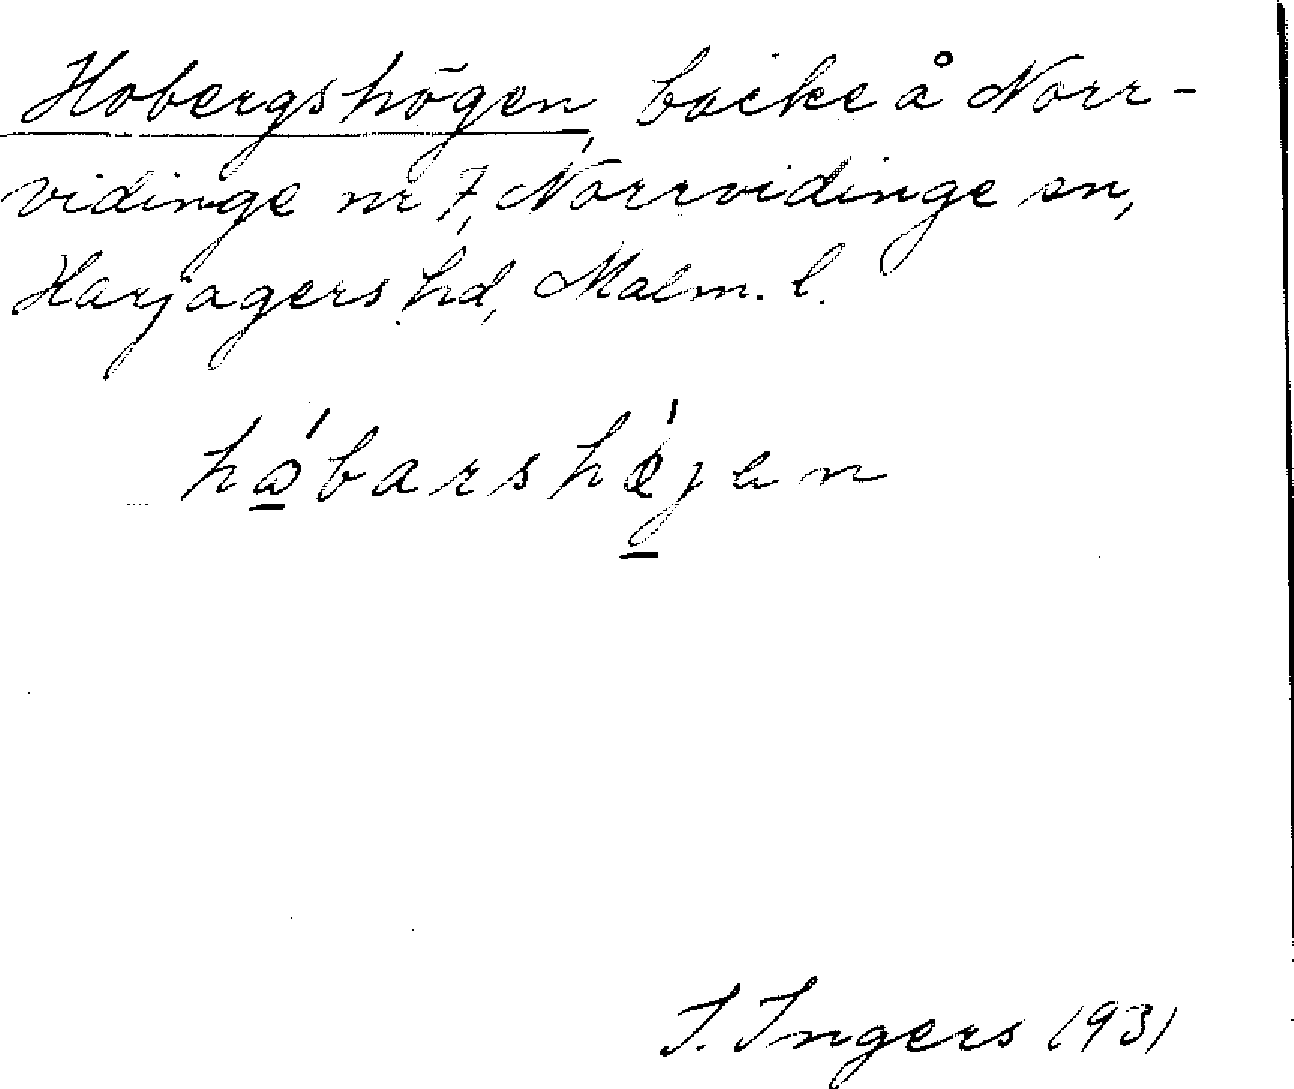 Hobergshögen, backe å Norr-
vidinge nr 7, Norrvidinge sn,
Harjagers hd, Malm. l.
håbarshøjen
I. Ingers 1931